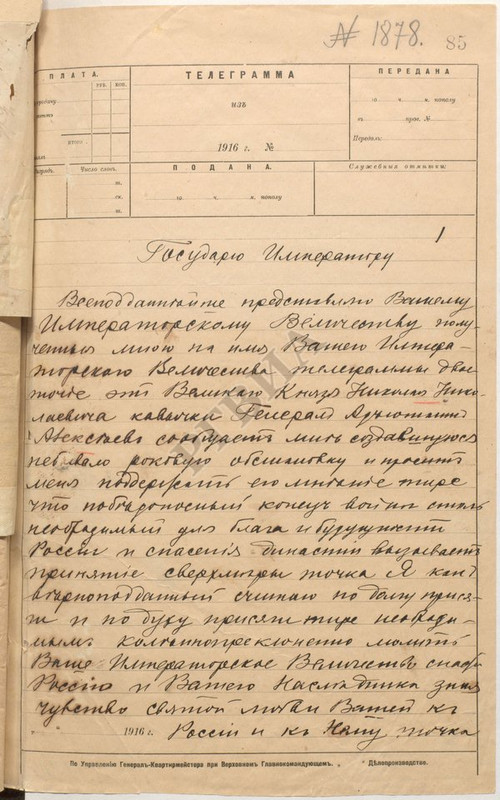 № 1878. 85
ПЛАТА.
руб. коп.
итого
Число словъ.
ТЕЛЕГРАММА
изъ
1916 г. №
ПОДАНА.
го ч. м. пополу
ПЕРЕДАНА
го ч. м. пополу
въ пров. №
Передалъ:
Служебныя отмѣтки:
1
Государю Императору
Всеподданнѣйше представляю Вашему
Императорскому Величеству полу-
ченныя мною на имя Вашего Импера-
торскаго Величества телеграммы двое
точіе отъ Великаго Князя Николая Нико-
лаевича кавычки Генералъ Адъютантъ
Алексѣевъ сообщаетъ мнѣ создавшуюся
небывало роковую обстановку и проситъ
меня поддержать его мнѣніе тире
что побѣдоносный конецъ войны столь
необходимый для блага и будущности
Россіи и спасенія династіи вызываетъ
принятіе сверхмѣры точка Я какъ
вѣрноподданный считаю по долгу прися-
ги и по духу присяги тире необходи-
мымъ колѣнопреклоненно молить
Ваше Императорское Величество спасти
Россію и Вашего Наслѣдника зная
чувство святой любви Вашей къ
Россіи и къ Нему точка
1916 г.
По Управленію Генералъ-Квартирмейстера при Верховномъ Главнокомандующемъ. Дѣлопроизводство.